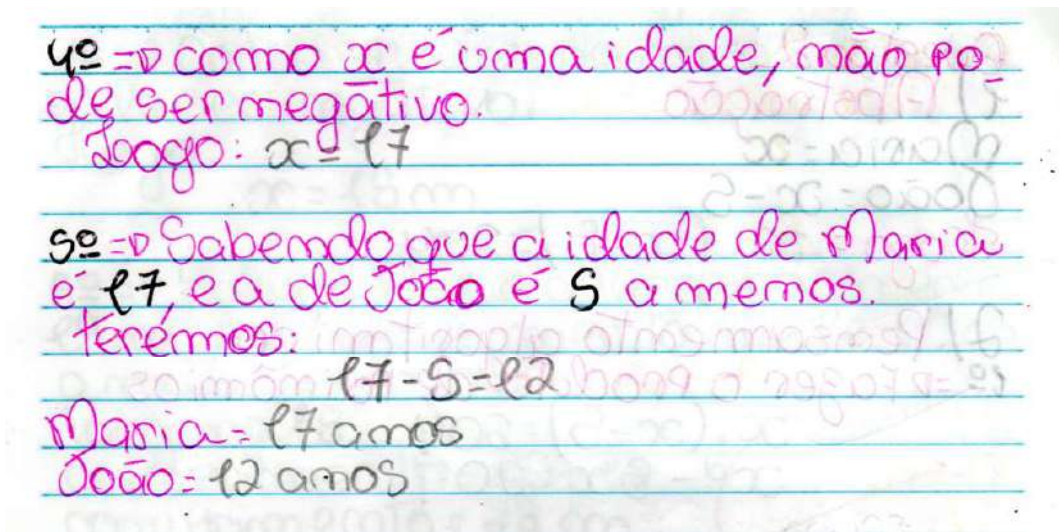 4º => como x é uma idade, não po_
de ser negativo.
Logo: x = 17
5º => Sabendo que a idade de Maria
é 17, e a de João é 5 a menos.
terémos:
17-5=12
Maria = 17 anos
João = 12 anos